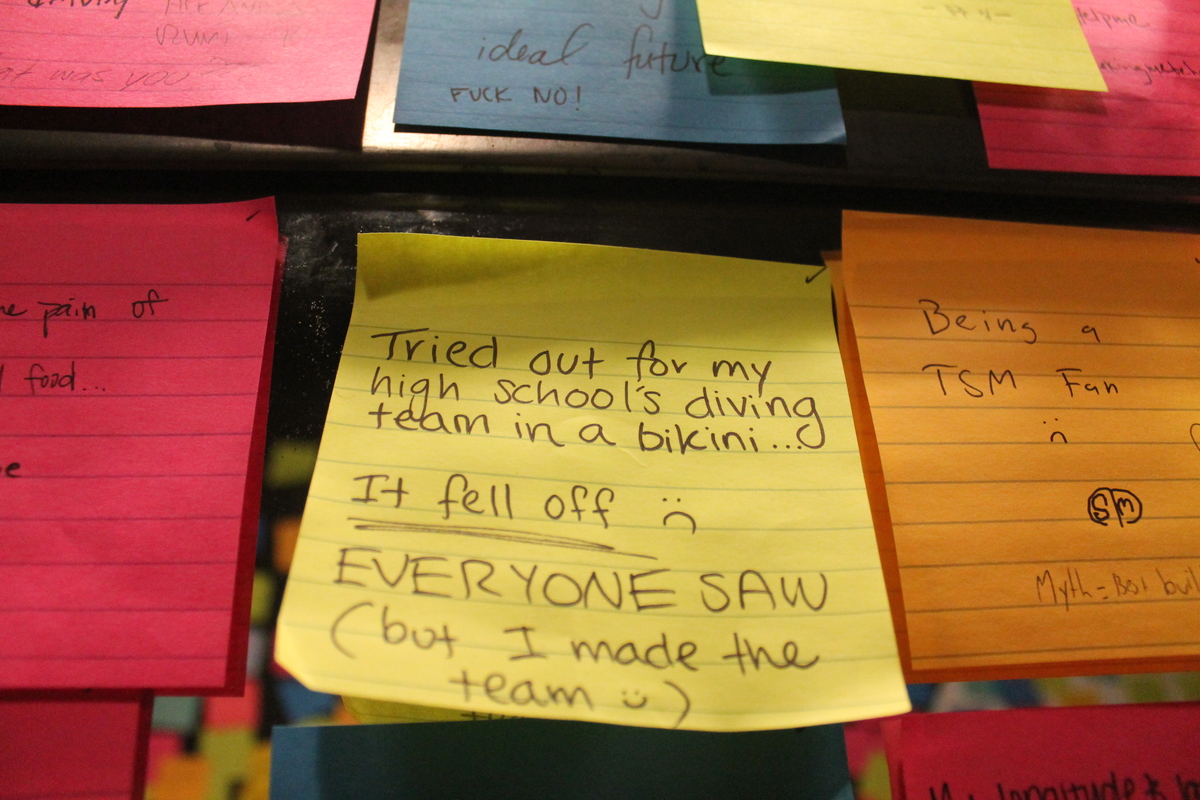 what was you?
ideal future
FUCK NO!
pain of
food...
Tried out for my
high school's diving
team in a bikini...
It fell off :(
EVERYONE SAW
(but I made the
team :))
Being a
TSM Fan
:(
SM
Myth =
longitude &